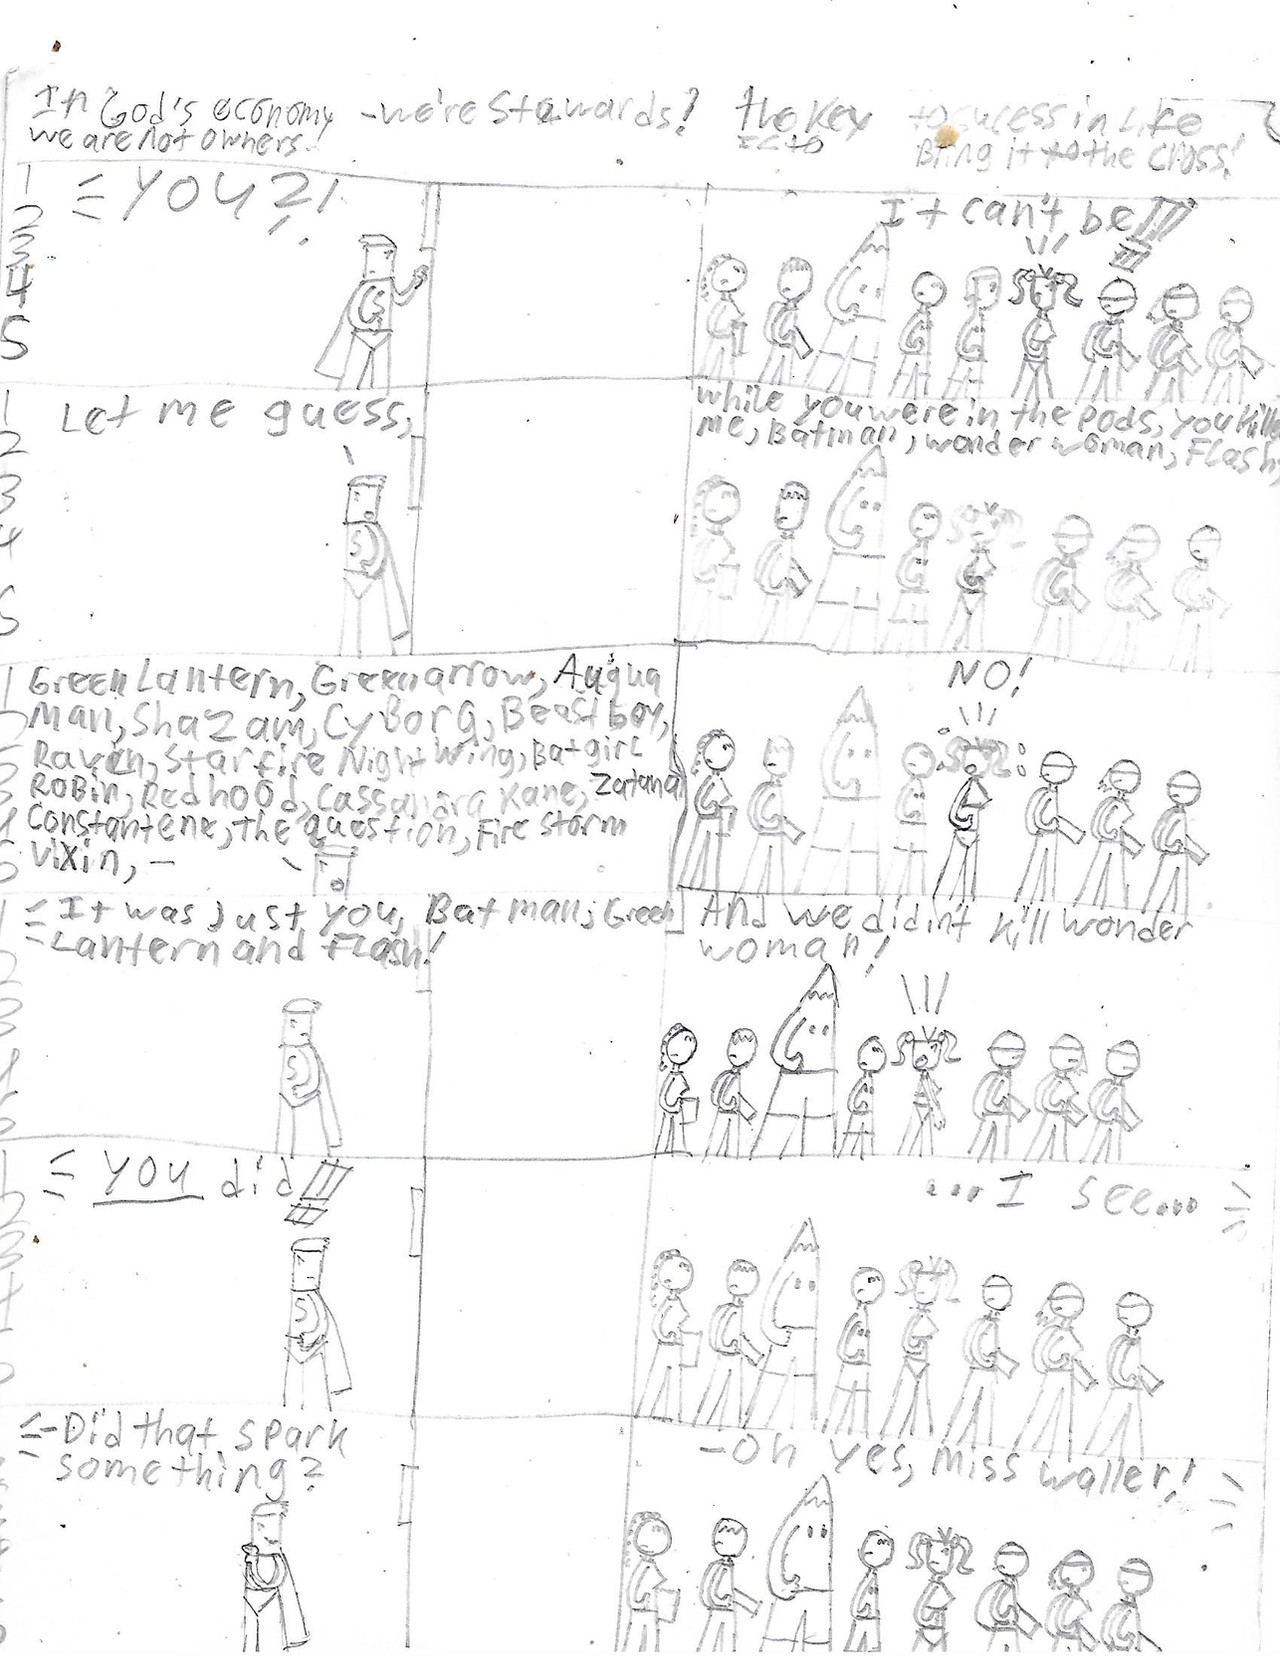 In God's economy - we're Stewards! the Key to sucess in Life
we are not owners! is to Bring it to the cross!
1
2
3
4
5
YOU?!
It can't be!!!
1
2
3
4
5
Let me guess,
while you were in the pods, you kille
me, Batman, wonder woman, Flash,
1
Green Lantern, Green arrow, Auqua
Man, Shazam, CyBorg, Beastboy,
Raven, Starfire Night Wing, Batgirl
Robin, Redhood, Cassandra Kane, Zatana
Constantene, the question, Fire Storm
Vixin, -
NO!
It was just you, Batman, Green
Lantern and Flash!
And we didin't kill wonder
woman!
YOU did!!!
...I see...
-Did that spark
something?
-Oh yes, Miss waller!